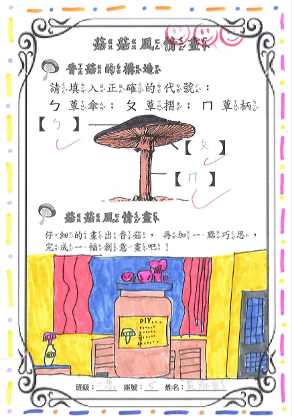 菇菇風情畫
香菇的構造
請填入正確的代號：
ㄅ 蕈傘；ㄆ 蕈摺；ㄇ 蕈柄
【ㄅ】
【ㄆ】
【ㄇ】
菇菇風情畫
仔細的畫出香菇，再加一點巧思，
完成一幅創意畫吧！
DIY
班級：三忠 座號：
姓名：